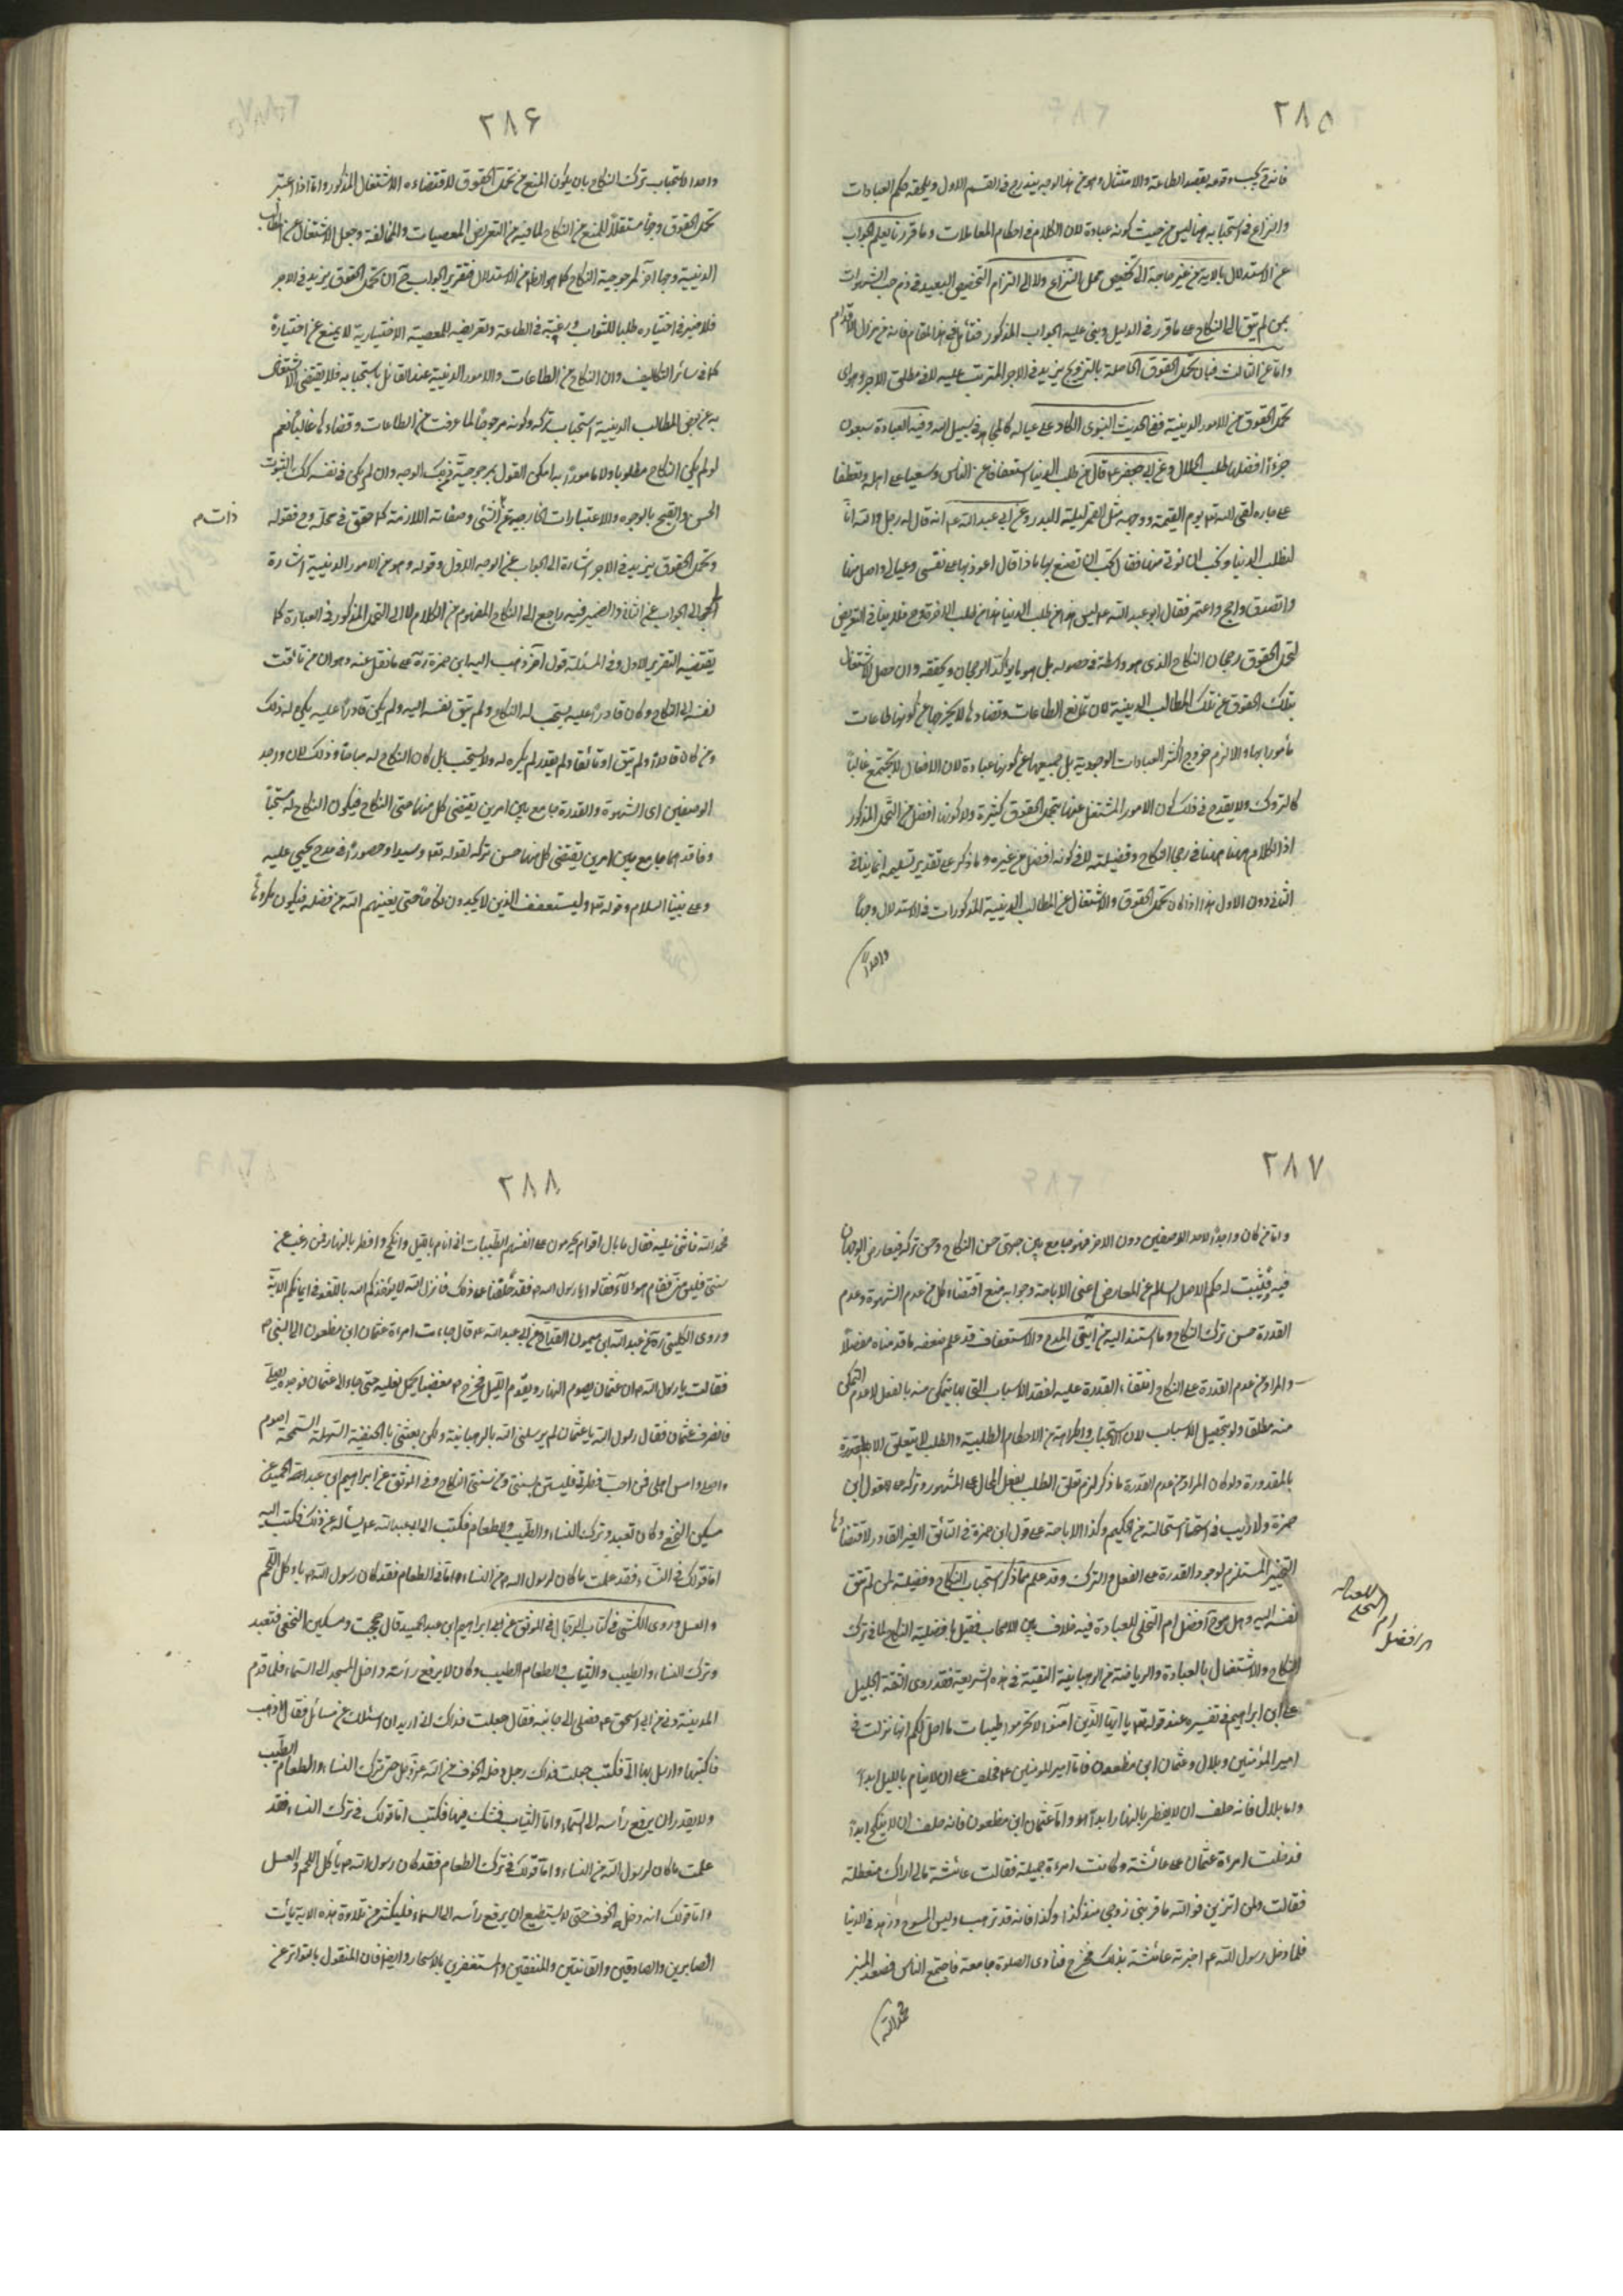 ٢٨٥
فانه يجب وقوعه بقصد الطاعة والامتثال وهو من هذا الوجه يندرج في القسم الاول ويلحقه حكم العبادات
والنزاع في استحبابه هنا ليس من حيث كونه عبادة لان الكلام في احكام المعاملات وما قررنا يعلم الجواب
عن الاستدلال بالاية من غير حاجة الى تخصيص محل النزاع ولا الى التزام التخصيص البعيد في ذم حب الشهوات
بمن لم يتق الى النكاح على ما قرر في الدليل وبنى عليه الجواب المذكور فتأمل في هذا المقام فانه من مزال الاقدام
واما عن الثالث فبان تحمل الحقوق الحاصلة بالتزويج يزيد في الاجر المترتب عليه لا في مطلق الاجر
تحمل الحقوق من الامور الدينية ففي الحديث النبوي الكاد على عياله كالمجاهد في سبيل الله وفيه العبادة سبعون
جزءا افضلها طلب الحلال وعن ابي جعفر ع قال من طلب الدنيا استعفافا عن الناس وسعيا على اهله وتعطفا
على جاره لقى الله يوم القيمة ووجهه مثل القمر ليلة البدر وعن ابي عبد الله ع انه قال له رجل والله انا
لنطلب الدنيا ونحب ان نؤتى منها فقال تحب ان تصنع بها ماذا قال اعود بها على نفسي وعيالي واصل منها
واتصدق واحج واعتمر فقال ابو عبد الله ع ليس هذا من طلب الدنيا هذا من طلب الاخرة وح فلا ينافي التعريض
لتحمل الحقوق رجحان النكاح الذي هو واسطة في حصوله بل هو ما يؤكد الرجحان ويحققه وان حصل الاشتغال
بتلك الحقوق عن تلك المطالب الدينية لان تمانع الطاعات وتضادها لا يخرجها عن كونها طاعات
مأمورا بها والا لزم خروج اكثر العبادات الوجودية بل جميعها عن كونها عبادة لان الافعال لا تجتمع غالبا
كالتروك ولا يقدح في ذلك كون الامور المشتغل عنها بتحمل الحقوق كثيرة ولا كونها افضل من التحمل المذكور
اذ الكلام ههنا في رجحان النكاح وفضيلته لا في كونه افضل من غيره وما ذكر على تقدير تسليمه انما ينافي
الثاني دون الاول هذا اذا كان تحمل الحقوق والاشتغال عن المطالب الدينية المذكورات في الاستدلال وجها
واحدا
٢٨۶
واحدا لاستحباب ترك النكاح بان يكون المنع من تحمل الحقوق لاقتضاءه الاشتغال المذكور واما اذا اعتبر
تحمل الحقوق وجها مستقلا للمنع عن النكاح لما فيه من التعريض للمعصيات والمخالفة وجعل الاشتغال عن المطالب
الدينية وجها آخر لمرجوحية النكاح كما هو الظاهر من الاستدلال فتقرير الجواب ح ان تحمل الحقوق يزيد في الاجر
فلا ضير في اختياره طلبا للثواب ورغبة في الطاعة وتعريضه للمعصية الاختيارية لا يمنع عن اختياره
كما في سائر التكاليف وان النكاح من الطاعات والامور الدينية عند القائل باستحبابه فلا يقتضى الاشتغال
به عن بعض المطالب الدينية استحباب تركه وكونه مرجوحا لما عرفت من الطاعات وتضادها غالبا نعم
لو لم يكن النكاح مطلوبا ولا مامورا به امكن القول بمرجوحيته لذلك الوجه وان لم يكن في نفسه كك لثبوت
الحسن والقبح بالوجوه والاعتبارات الخارجية عن الشئ وصفاته اللازمة كما حقق في محله وح فقوله
ذات م
وتحمل الحقوق يزيد في الاجر اشارة الى الجواب عن الوجه الاول وقوله وهو من الامور الدينية اشارة
الى الجواب عن الثاني والضمير فيه راجع الى النكاح المفهوم من الكلام لا الى التحمل المذكور في العبارة كما
يقتضيه التقرير الاول وفي المسئلة قول آخر ذهب اليه ابن حمزة ره على ما نقل عنه وهو ان من تاقت
نفسه الى النكاح وكان قادرا عليه يستحب له النكاح ولم يتق نفسه اليه ولم يكن قادرا عليه يكره له ذلك
ومن كان قادرا ولم يتق او تائقا ولم يقدر لم يكره له ولا يستحب بل كان النكاح له مباحا وذلك لان واجد
الوصفين اى الشهوة والقدرة جامع بين امرين يقتضى كل منهما حسن النكاح فيكون النكاح له مستحبا
وفاقدهما جامع بين امرين يقتضى كل منهما حسن تركه لقوله تعا وسيدا وحصورا في مدح يحيى عليه
وعلى نبينا السلام وقوله تعا وليستعفف الذين لا يجدون نكاحا حتى يغنيهم الله من فضله فيكون مكروها
٢٨٧
واما من كان واجدا لاحد الوصفين دون الاخر فهو جامع بين جهتي حسن النكاح وحسن تركه فيتعارض الوجهان
فيه فيثبت له حكم الاصل السالم عن المعارض اعنى الاباحة وجوابه منع اقتضاء كل من عدم الشهوة وعدم
القدرة حسن ترك النكاح وما استند اليه من آيتي المدح والاستعفاف قد علم ضعفه مما قدمناه مفصلا
والمراد من عدم القدرة على النكاح انتفاء القدرة عليه لفقد الاسباب التي بها يتمكن منه بالفعل لا عدم التمكن
منه مطلقا ولو بتحصيل الاسباب لان الاستحباب والكراهة من الاحكام الطلبية والطلب لا يتعلق الا
بالمقدورة ولو كان المراد من عدم القدرة ما ذكر لزم تعلق الطلب بفعل المحال على المشهور وتركه على القول ابن
حمزة ولا ريب في استحالته من الحكيم وكذا الاباحة على قول ابن حمزة في التائق الغير القادر لاقتضاءها
التخيير المستلزم لوجود القدرة على الفعل والترك وقد علم مما ذكر استحباب النكاح وفضيلته لمن لم تتق
نفسه اليه وهل هو ح افضل ام التخلى للعبادة فيه خلاف بين الاصحاب فقيل بافضلية النكاح لما في ترك
هو افضل ام التخلى للعبادة
النكاح والاشتغال بالعبادة والرياضة من الرهبانية المنفية في هذه الشريعة فقد روى الثقة الجليل
على ابن ابراهيم في تفسيره عند قوله تعا يا ايها الذين آمنوا لا تحرموا طيبات ما احل لكم انها نزلت في
امير المؤمنين وبلال وعثمان ابن مظعون فاما امير المؤمنين ع فحلف على ان لا ينام بالليل ابدا
واما بلال فانه حلف ان لا يفطر بالنهار ابدا واما عثمان ابن مظعون فانه حلف ان لا ينكح ابدا
فدخلت امرءة عثمان على عائشة وكانت امرءة جميلة فقالت عائشة مالى اراك متعطلة
فقالت ولمن اتزين فوالله ما قربني زوجي منذ كذا وكذا فانه قد ترهب ولبس المسوح وزهد في الدنيا
فلما دخل رسول الله ص اخبرته عائشة بذلك فخرج فنادى الصلوة جامعة فاجتمع الناس فصعد المنبر
فحمد الله
٢٨٨
فحمد الله واثنى عليه فقال ما بال اقوام يحرمون على انفسهم الطيبات انى انام بالليل وانكح وافطر بالنهار فمن رغب عن
سنتي فليس مني فقام هؤلاء فقالوا يا رسول الله ص فقد حلفنا على ذلك فانزل الله لا يؤاخذكم الله باللغو في ايمانكم الاية
وروى الكليني ره عن عبد الله ابن ميمون القداح عن ابي عبد الله ع قال جاءت امرءة عثمان ابن مظعون الى النبي ص
فقالت يا رسول الله ان عثمان يصوم النهار ويقوم الليل فخرج ص مغضبا يحمل نعليه حتى جاء الى عثمان فوجده يصلي
فانصرف عثمان فقال رسول الله يا عثمان لم يرسلني الله بالرهبانية ولكن بعثني بالحنيفية السهلة السمحة اصوم
واصلي وامس اهلي فمن احب فطرتي فليستن بسنتي ومن سنتي النكاح وفي الموثق عن ابراهيم ابن عبد الحميد عن
سكين النخعي وكان تعبد وترك النساء والطيب والطعام فكتب الى ابي عبد الله ع يسأله عن ذلك فكتب اليه
اما قولك في النساء فقد علمت ما كان لرسول الله ص من النساء واما في الطعام فقد كان رسول الله ص يأكل اللحم
والعسل وروى الكشي في كتاب الرجال في الموثق عن ابراهيم ابن عبد الحميد قال حججت وسكين النخعي فتعبد
وترك النساء والطيب والثياب والطعام الطيب وكان لا يرفع رأسه داخل المسجد الى السماء فلما قدم
المدينة دنى من ابي اسحق ع فصلى الى جانبه فقال جعلت فداك انى اريد ان اسئلك عن مسائل فقال اذهب
فاكتبها وارسل بها الى فكتب جعلت فداك رجل دخله الخوف من الله عز وجل حتى ترك النساء والطعام الطيب
ولا يقدر ان يرفع رأسه الى السماء واما الثياب فشك فيها فكتب اما قولك في ترك النساء فقد
علمت ما كان لرسول الله من النساء واما قولك في ترك الطعام فقد كان رسول الله ص يأكل اللحم والعسل
واما قولك انه دخله الخوف حتى لا يستطيع ان يرفع رأسه الى السماء فليكثر من تلاوة هذه الاية يأت
الصابرين والصادقين والقانتين والمنفقين والمستغفرين بالاسحار وايضا فان المنقول بالتواتر عن